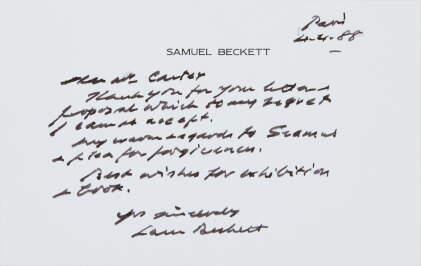 Paris
4.4.88
SAMUEL BECKETT
Dear Mr Carter
Thank you for your letter &
proposal which to my regret
I cannot accept.
My warm regards to Seamus
& plea for forgiveness.
Best wishes for exhibition
& book.
Yrs sincerely
Sam Beckett